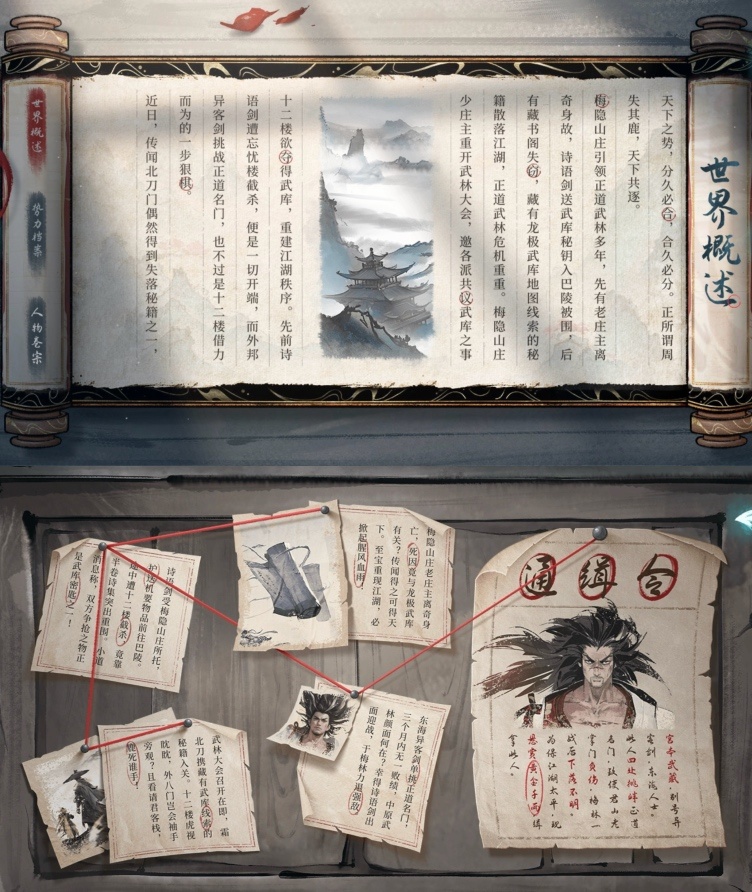 世界概述
天下之势，分久必合，合久必分。正所谓周
失其鹿，天下共逐。
梅隐山庄引领正道武林多年，先有老庄主离
奇身故，诗语剑送武库秘钥入巴陵被围，后
有藏书阁失窃，藏有龙极武库地图线索的秘
籍散落江湖，正道武林危机重重。梅隐山庄
少庄主重开武林大会，邀各派共议武库之事
十二楼欲夺得武库，重建江湖秩序。先前诗
语剑遭忘忧楼截杀，便是一切开端，而外邦
异客剑挑战正道名门，也不过是十二楼借力
而为的一步狠棋。
近日，传闻北刀门偶然得到失落秘籍之一，
世界概述
势力档案
人物卷宗
通缉令
宫本武藏，别号异
客剑，东瀛人士。
此人四处挑衅正道
名门，致使君山龙
掌门负伤，梅林一
战后下落不明。
为保江湖太平，现
悬赏黄金千两缉
拿此人。
梅隐山庄老庄主离奇身
亡，死因竟与龙极武库
有关？传闻得之可得天
下。至宝重现江湖，必
掀起腥风血雨，
诗语剑受梅隐山庄所托，
护送机要物品前往巴陵。
途中遭十二楼截杀，竟靠
半卷诗集突出重围。小道
消息称，双方争抢之物正
是武库密匙之一！
东海异客剑单挑正道名门，
三个月内无一败绩，中原武
林颜面何在？幸得诗语剑出
面迎战，于梅林力退强敌，
武林大会召开在即，霜
北刀携藏有武库线索的
秘籍入关。十二楼虎视
眈眈，外八门岂会袖手
旁观？且看请君客栈，
鹿死谁手！